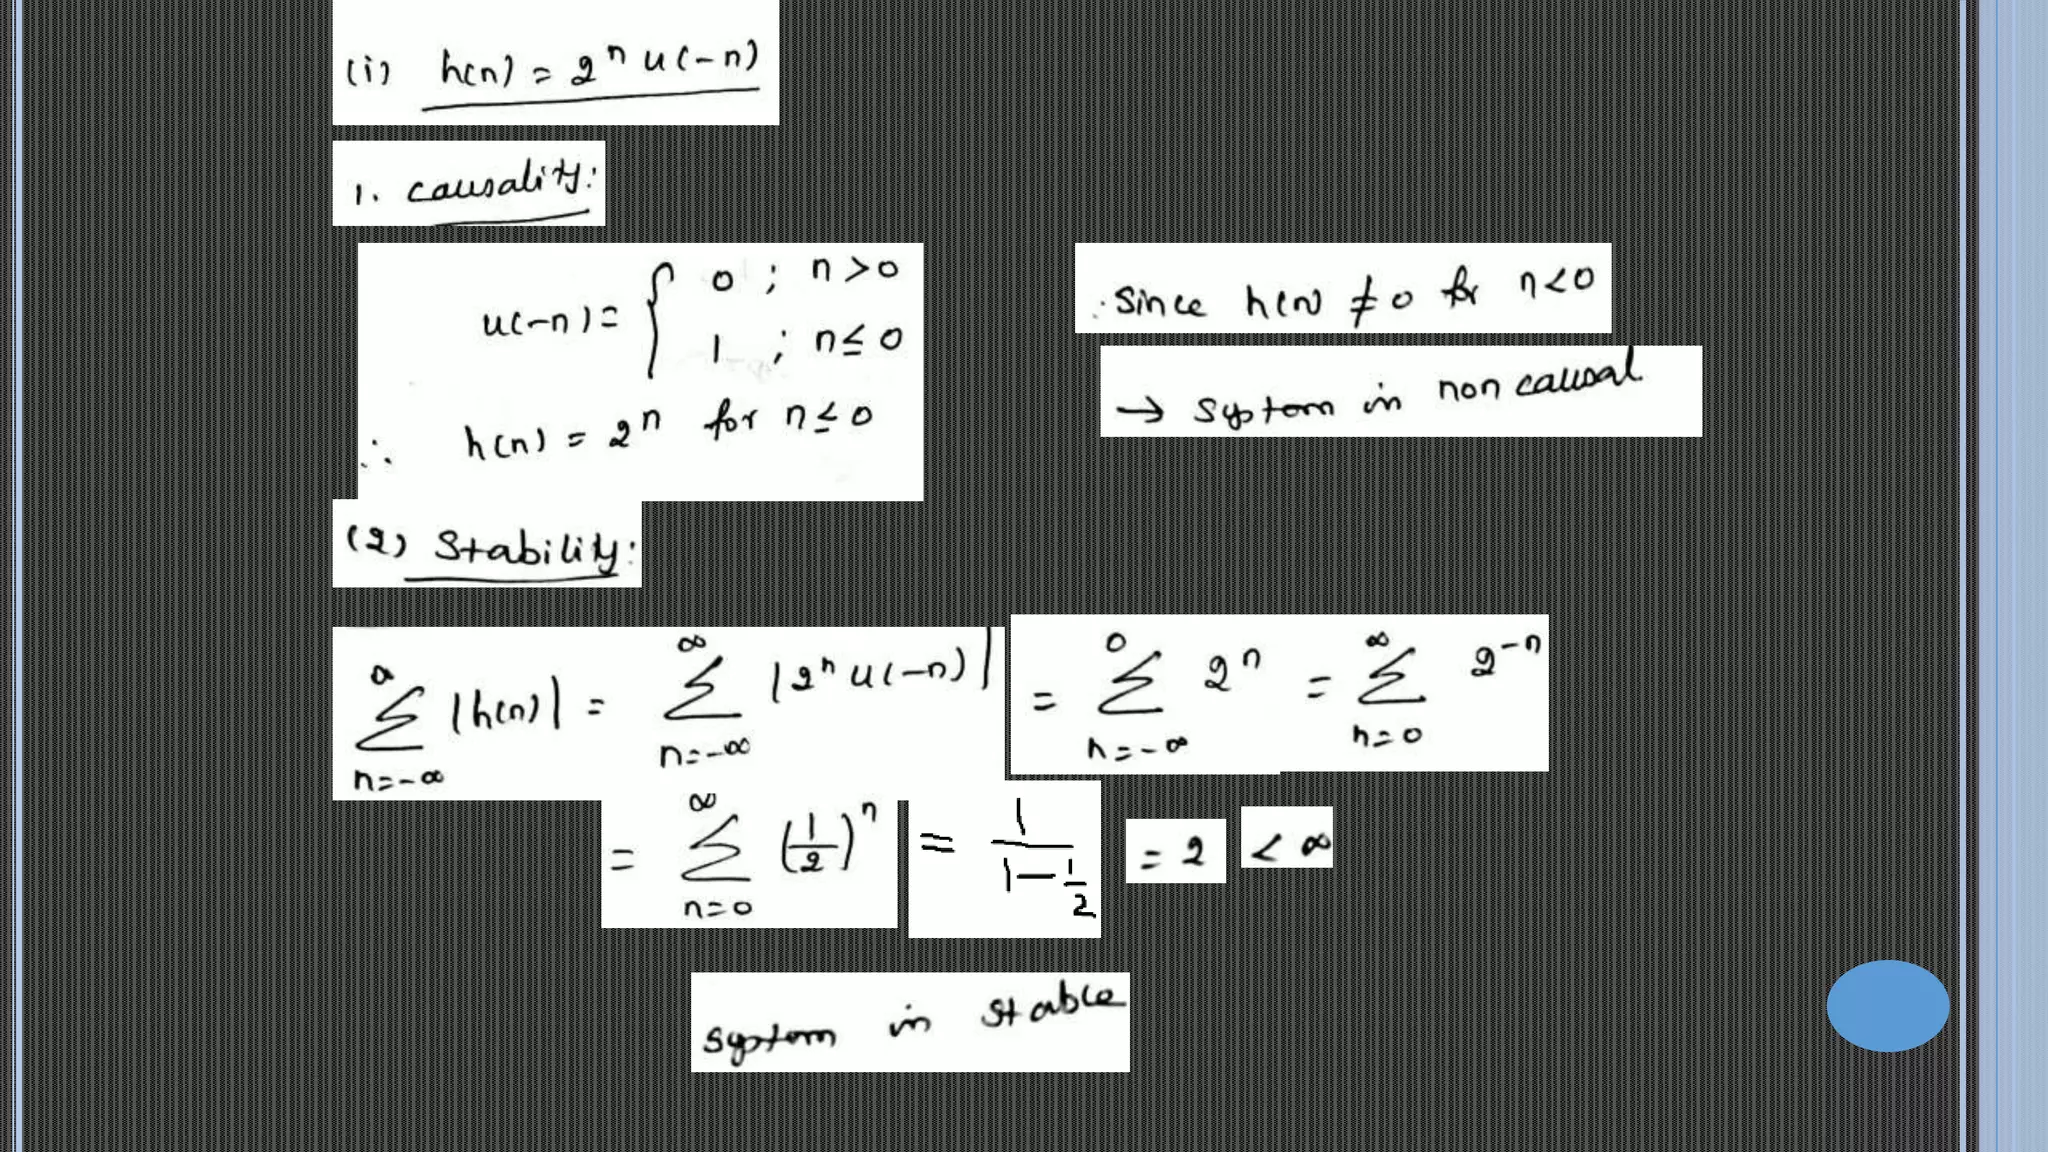 (i) h(n) = 2^n u(-n)
1. Causality:
u(-n) = { 0 ; n > 0
1 ; n ≤ 0
∴ h(n) = 2^n for n ≤ 0
∴ Since h(n) ≠ 0 for n < 0
→ System is non causal
(2) Stability:
∑_{n=-∞}^{∞} |h(n)| = ∑_{n=-∞}^{∞} |2^n u(-n)| = ∑_{n=-∞}^{0} 2^n = ∑_{n=0}^{∞} 2^{-n}
= ∑_{n=0}^{∞} (1/2)^n = 1/(1 - 1/2) = 2 < ∞
System is stable